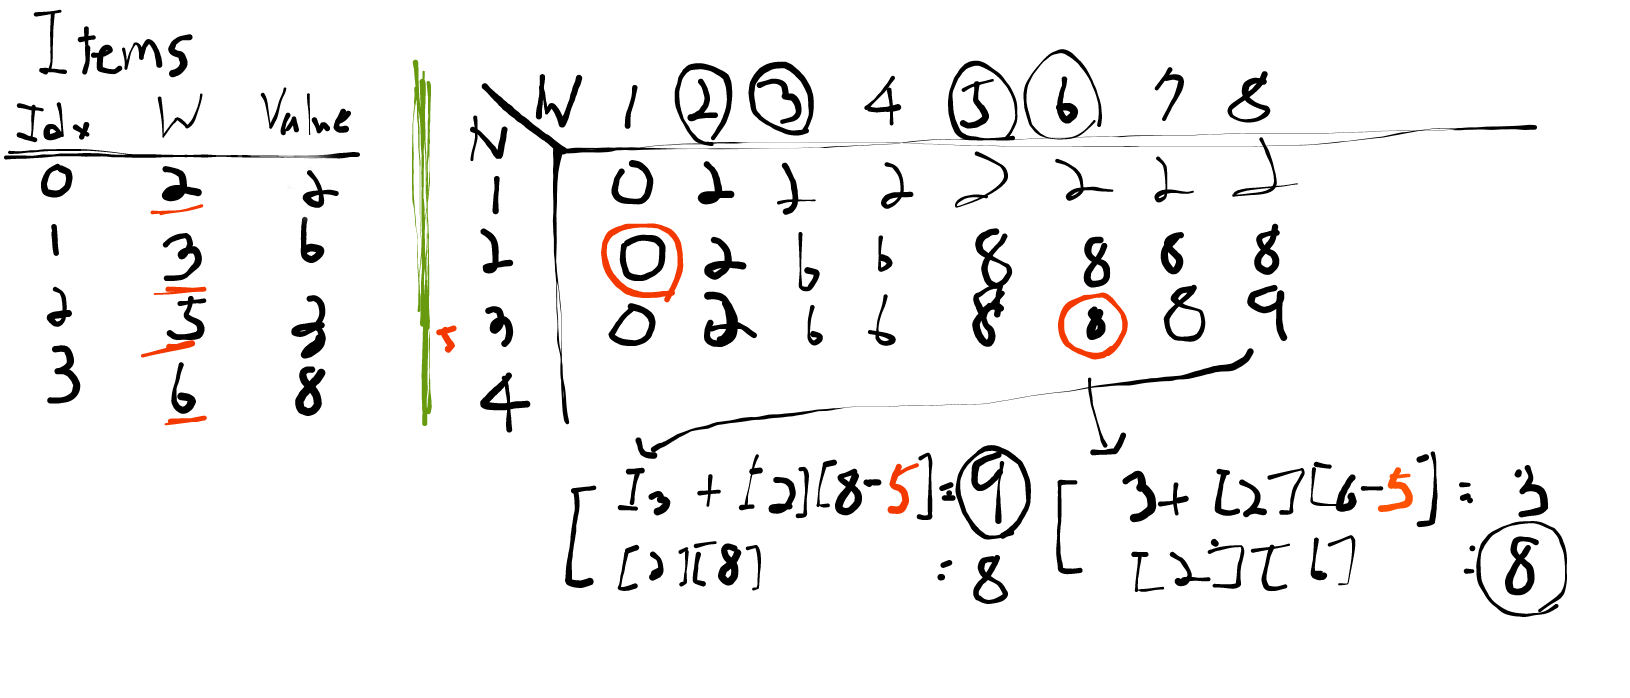 Items
Idx W Value
0 2 2
1 3 6
2 5 3
3 6 8
W 1 2 3 4 5 6 7 8
N
1 0 2 2 2 2 2 2 2
2 0 2 6 6 8 8 8 8
5 3 0 2 6 6 8 8 8 9
4
I3 + [2][8-5] = 9
[2][8] = 8
3+ [2][6-5] = 3
[2][6] = 8